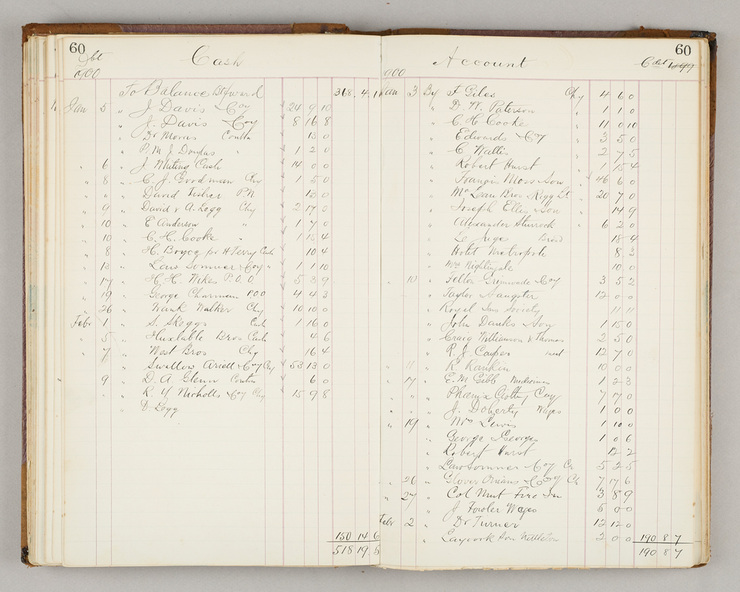 60
Cash
1900
To Balance Bt forward 368. 4. 1
Jan 5 " J Davis & Coy 24 9 10
" J. Davis & Coy 8 16 8
" Dr Morris Contra 15 0
" P. M. J. Douglas 1 2 0
6 " J. Waters Cash 14 0 0
" 8 " C. J. Goodman Chq 1 5 0
" " David Fisher P.N 15 0
" 9 " David & A. Legg Chq 2 17 2
" 10 " E Anderson " 1 7 0
" 10 " C. H. Cooke " 1 15 4
" 8 " H Boyce for H Perry Cash 10 4
" 12 " Law Somner & Coy " 1 1 10
" 17 " H. H. Wikes P.O.O 5 3 9
" 19 " George Chairman POO 4 4 3
" 26 " Frank Walker Chq 10 10 0
Feby 1 " S. Skeggs Cash 1 16 0
" 5 " Huxtable Bros Cash 4 6
" 7 " West Bros Chq 16 4
" " Swallow Ariell & Coy Chq 53 13 0
" 9 " D. A. Glenn Contra 6 0
" " R. Y. Nicholls & Coy Chq 15 9 8
" D Legg
150 14 6
518 19 5
60
Account
1900
Jan 3 By F Giles Chq 4 6 0
" D. W. Paterson 1 1 0
" C. H. Cooke 11 0 10
" Edwards & Coy 3 5 0
" C. Wattis 2 7 5
" Robert Hurst 1 15 4
" Francis Moss & Son 46 6 0
" 20 7 0
" Joseph Ellis & Son 14 9
" Alexander Sturrock 6 2 0
" 18 4
" Hotel Metropole 8 3
" Mrs Nightingale 10 0
" 10 " Felton Grimwade & Coy 3 5 2
" Taylor & Sangster 12 0 0
" 11 11
" John Danks & Son 1 15 0
" Craig Williamson & Thomas 2 5 0
" R. J. Casper 12 7 0
" R. Rankin 10 0 0
" 17 " E. M. Gibb 1 2 3
" 7 17 0
" " J. Doherty Wages 1 0 0
" 19 " Mrs Lewis 1 10 0
" George & George 1 0 6
" Robert Hurst 12 2
" Law Somner & Coy Ca 5 2 5
" 26 " 7 17 6
" 27 " Col Mut Fire Ins 3 8 9
" J. Fowler Wages 5 0 0
Feby 2 " Dr Turner 12 12 0
" 2 0 0 190 8 7
190 8 7